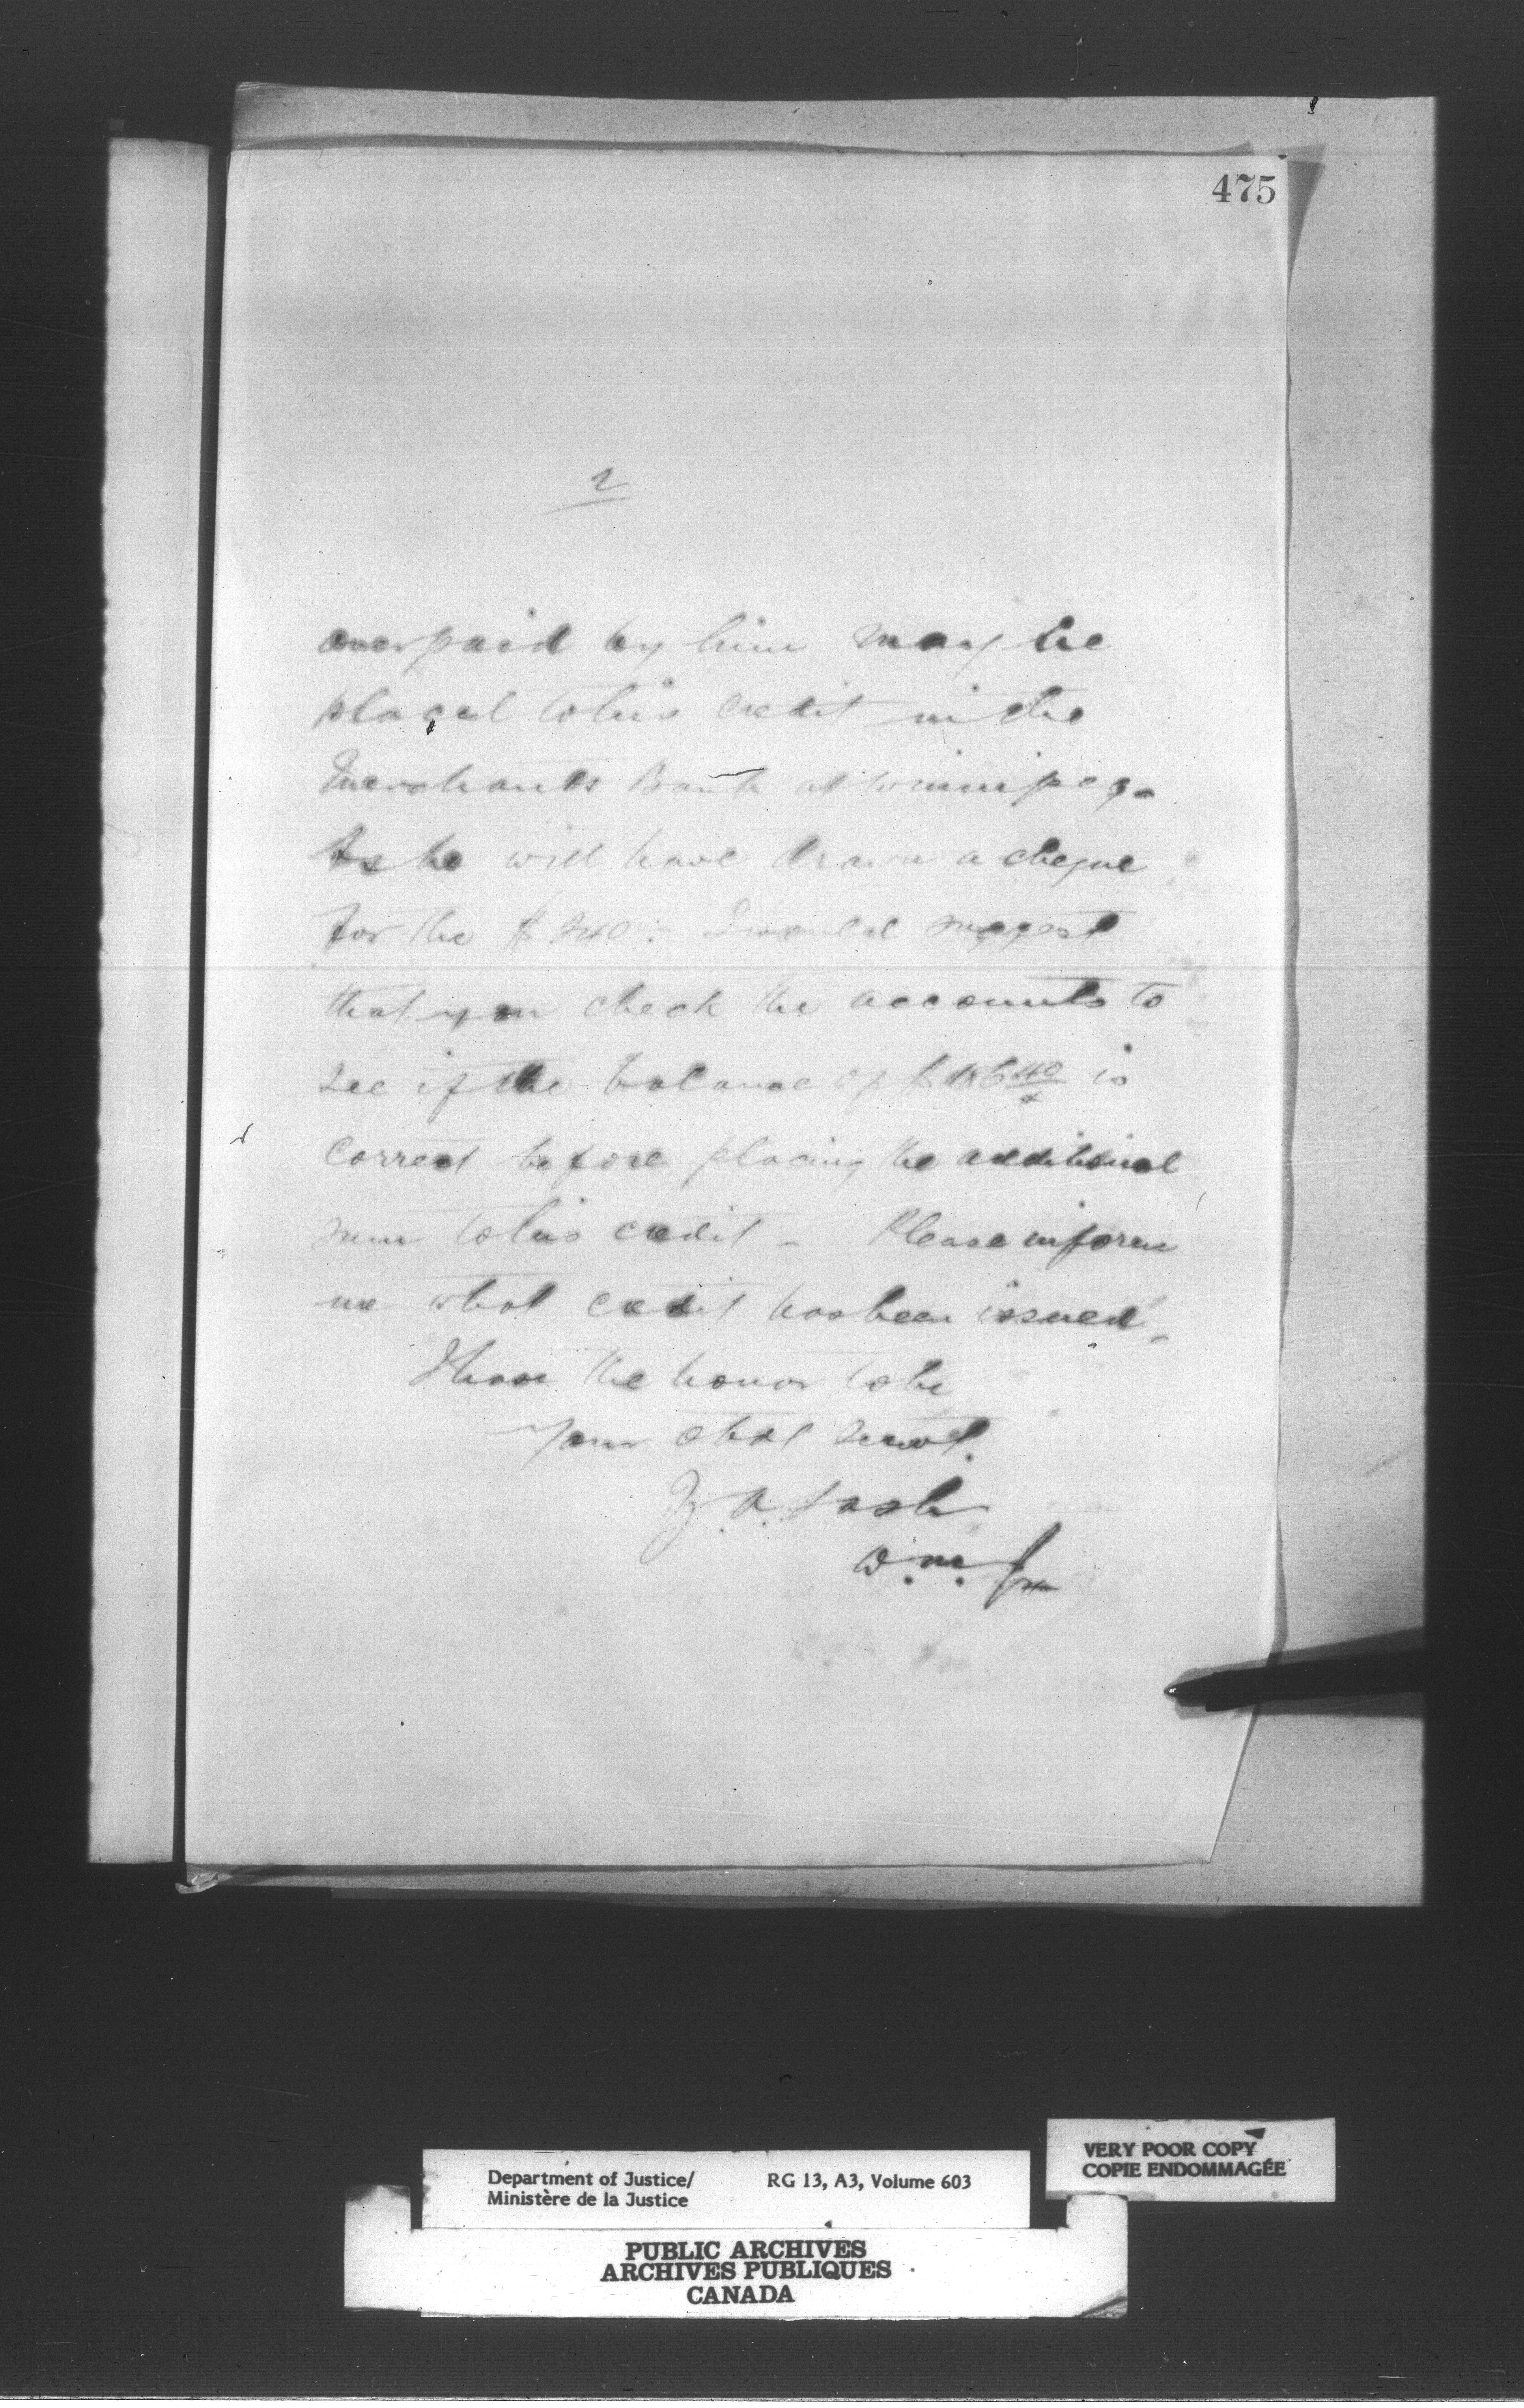 475
2
overpaid by him may be
placed to his credit in the
Merchants Bank at Winnipeg.
As he will have drawn a cheque
for the $240. I would suggest
that you check the accounts to
see if the balance of $ 40 is
correct before placing the additional
sum to his credit - Please inform
me what credit has been issued.
I have the honor to be
Your obdt servt.
Z. A. Lash
D. M. J.
Department of Justice/ RG 13, A3, Volume 603
Ministère de la Justice
VERY POOR COPY
COPIE ENDOMMAGÉE
PUBLIC ARCHIVES
ARCHIVES PUBLIQUES
CANADA